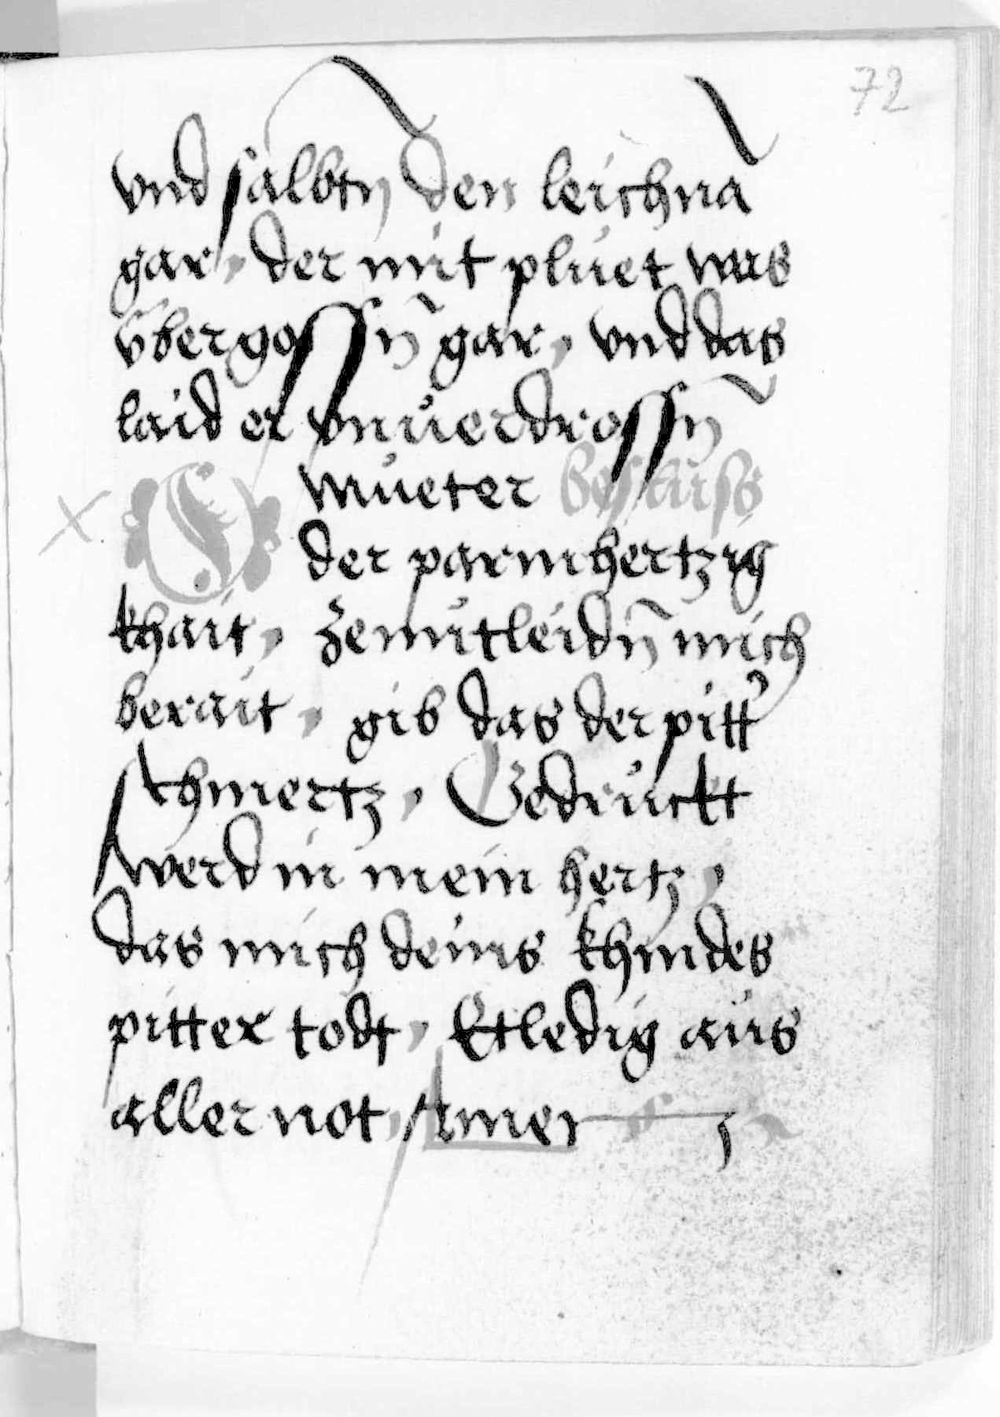 72
vnd salbtn den leichna
gar, der mit pluet was
vbergossn̄ gar, vnd das
laid er vnuerdrossn̄
O mueter beslus
der parmhertzig
khait, zemitleidn̄ mich
berait, gib das der pitt'
schmertz, Gedruckt
werd in mein hertz,
das mich deins khindes
pitter todt, Etledig aus
aller not, Amen